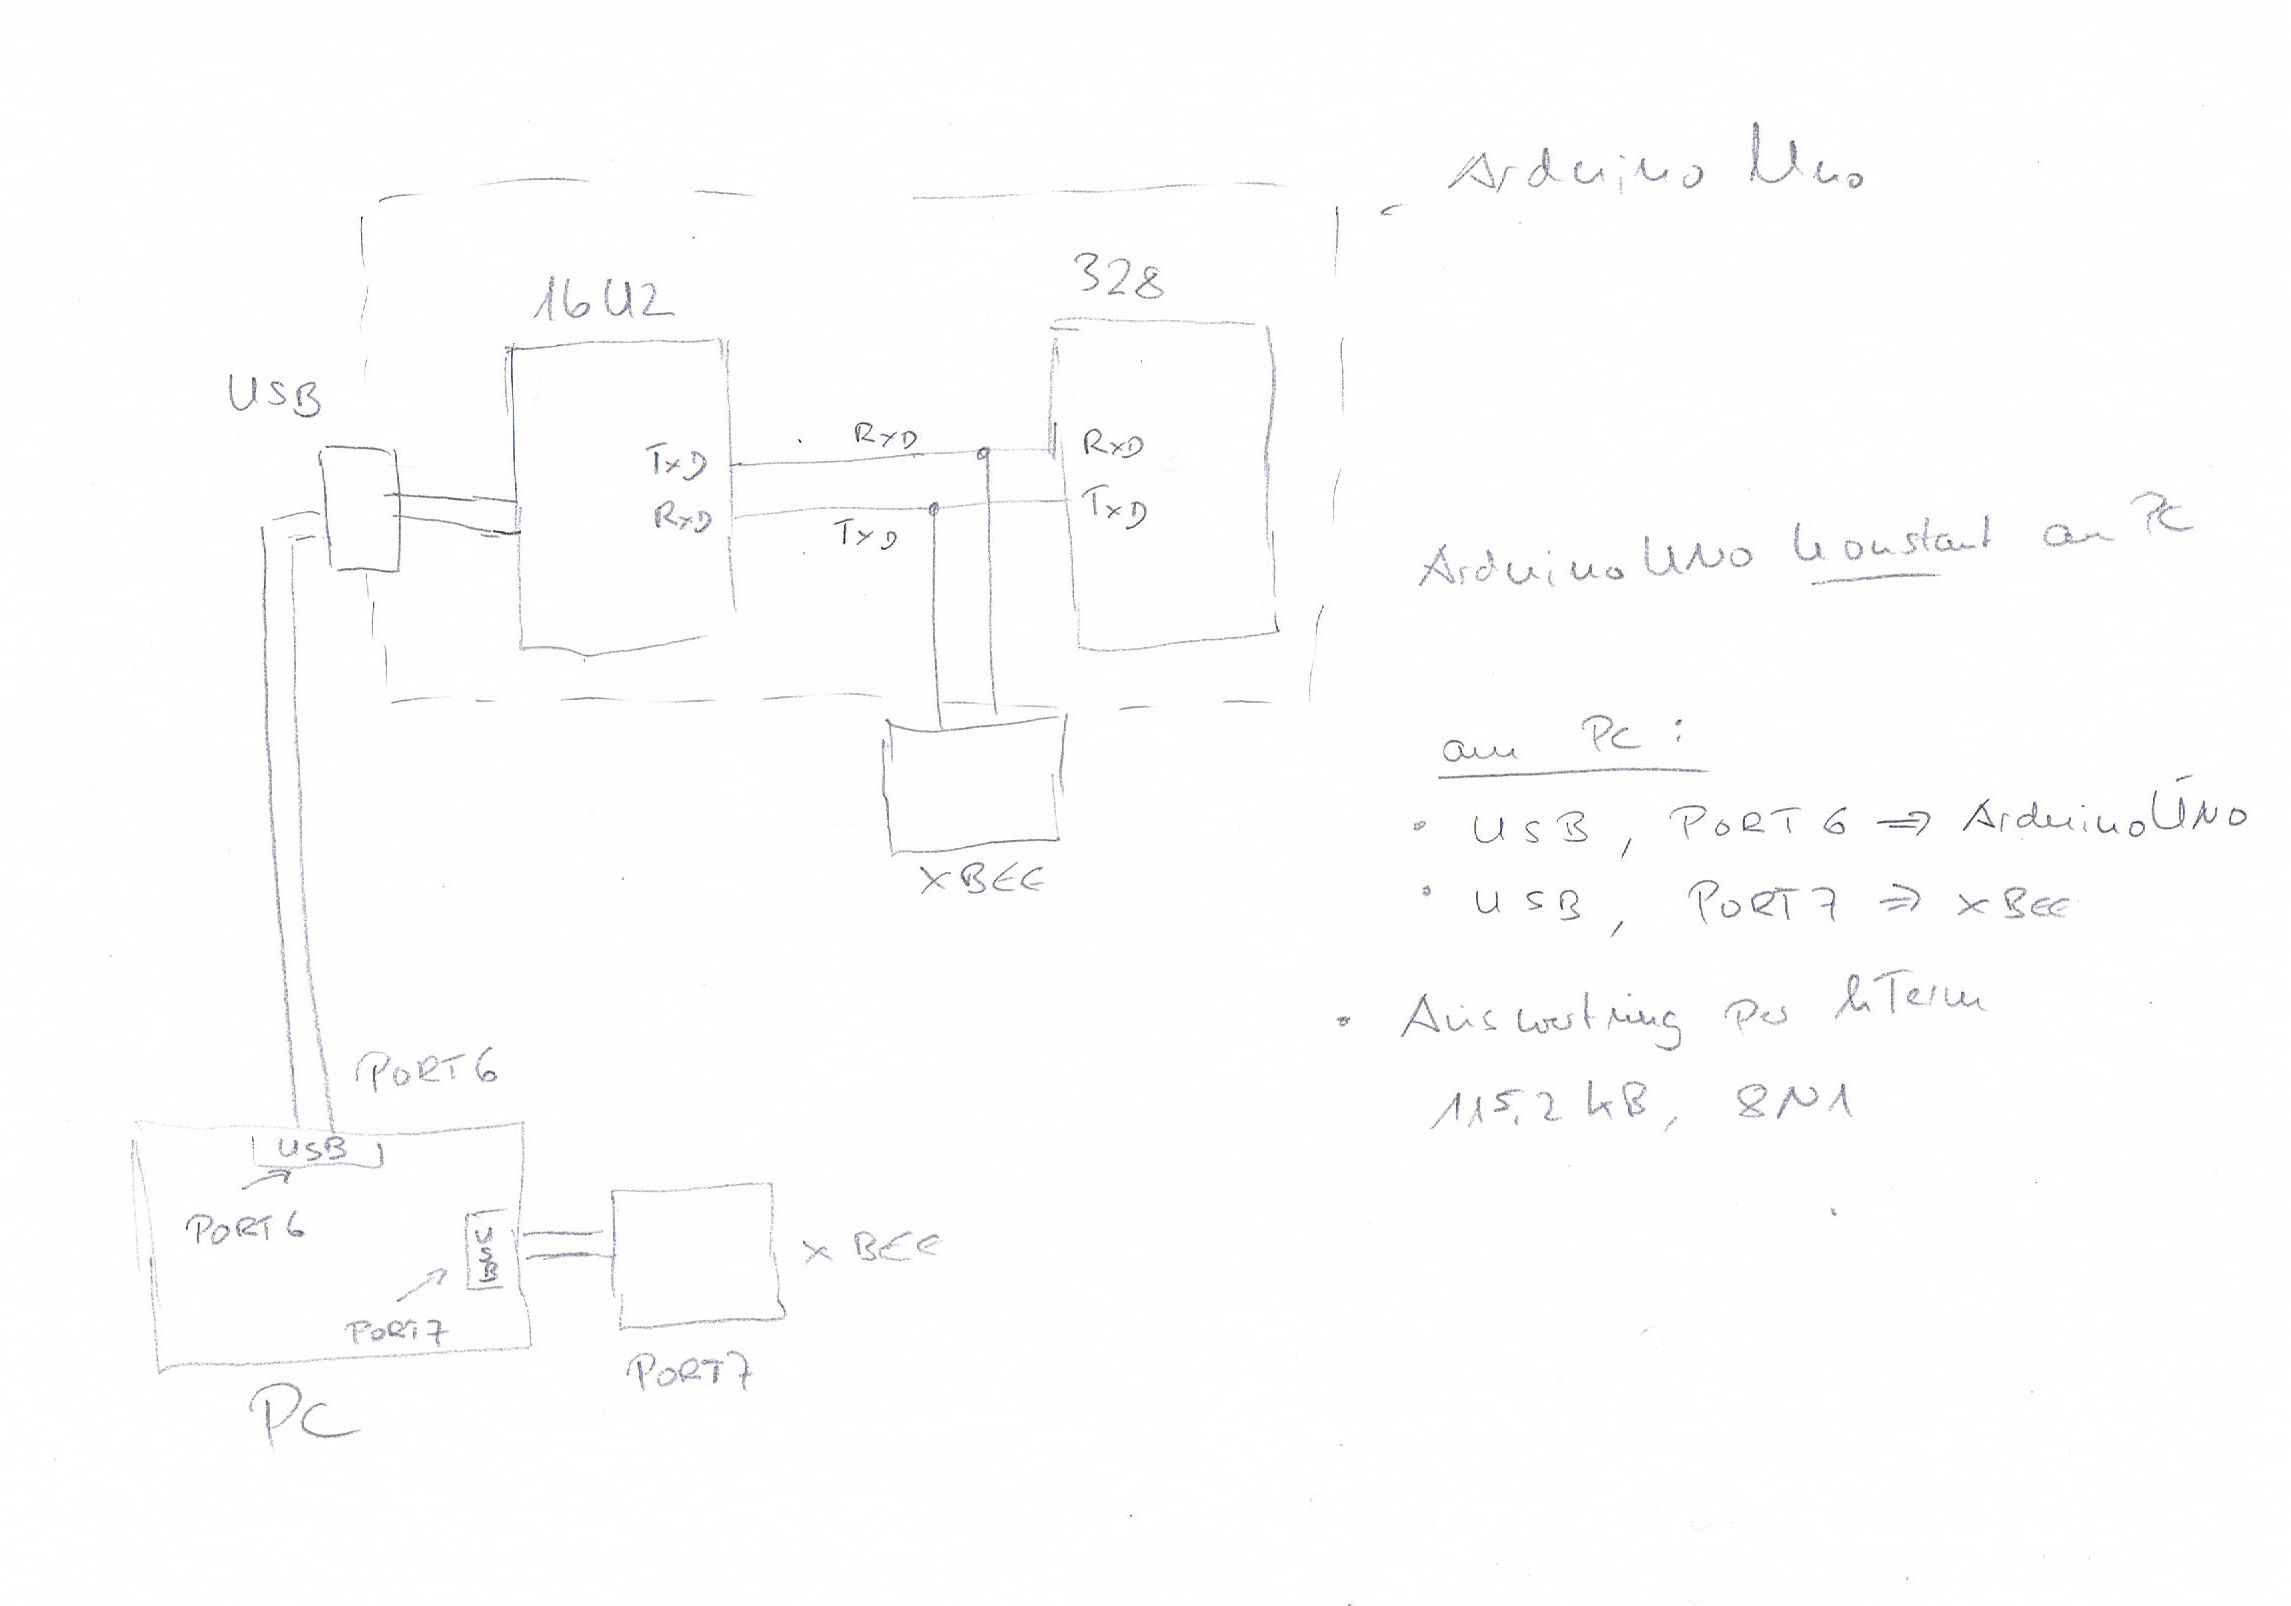 Arduino Uno
328
16U2
USB
RxD
TxD
RxD
RxD
TxD
TxD
Arduino UNO konstant an PC
XBEE
am PC:
• USB, PORT 6 ⇒ Arduino UNO
• USB, PORT 7 ⇒ XBEE
• Auswertung per hTerm
115,2 kB, 8N1
PORT6
USB
PORT6
USB
PORT7
XBEE
PORT7
PC